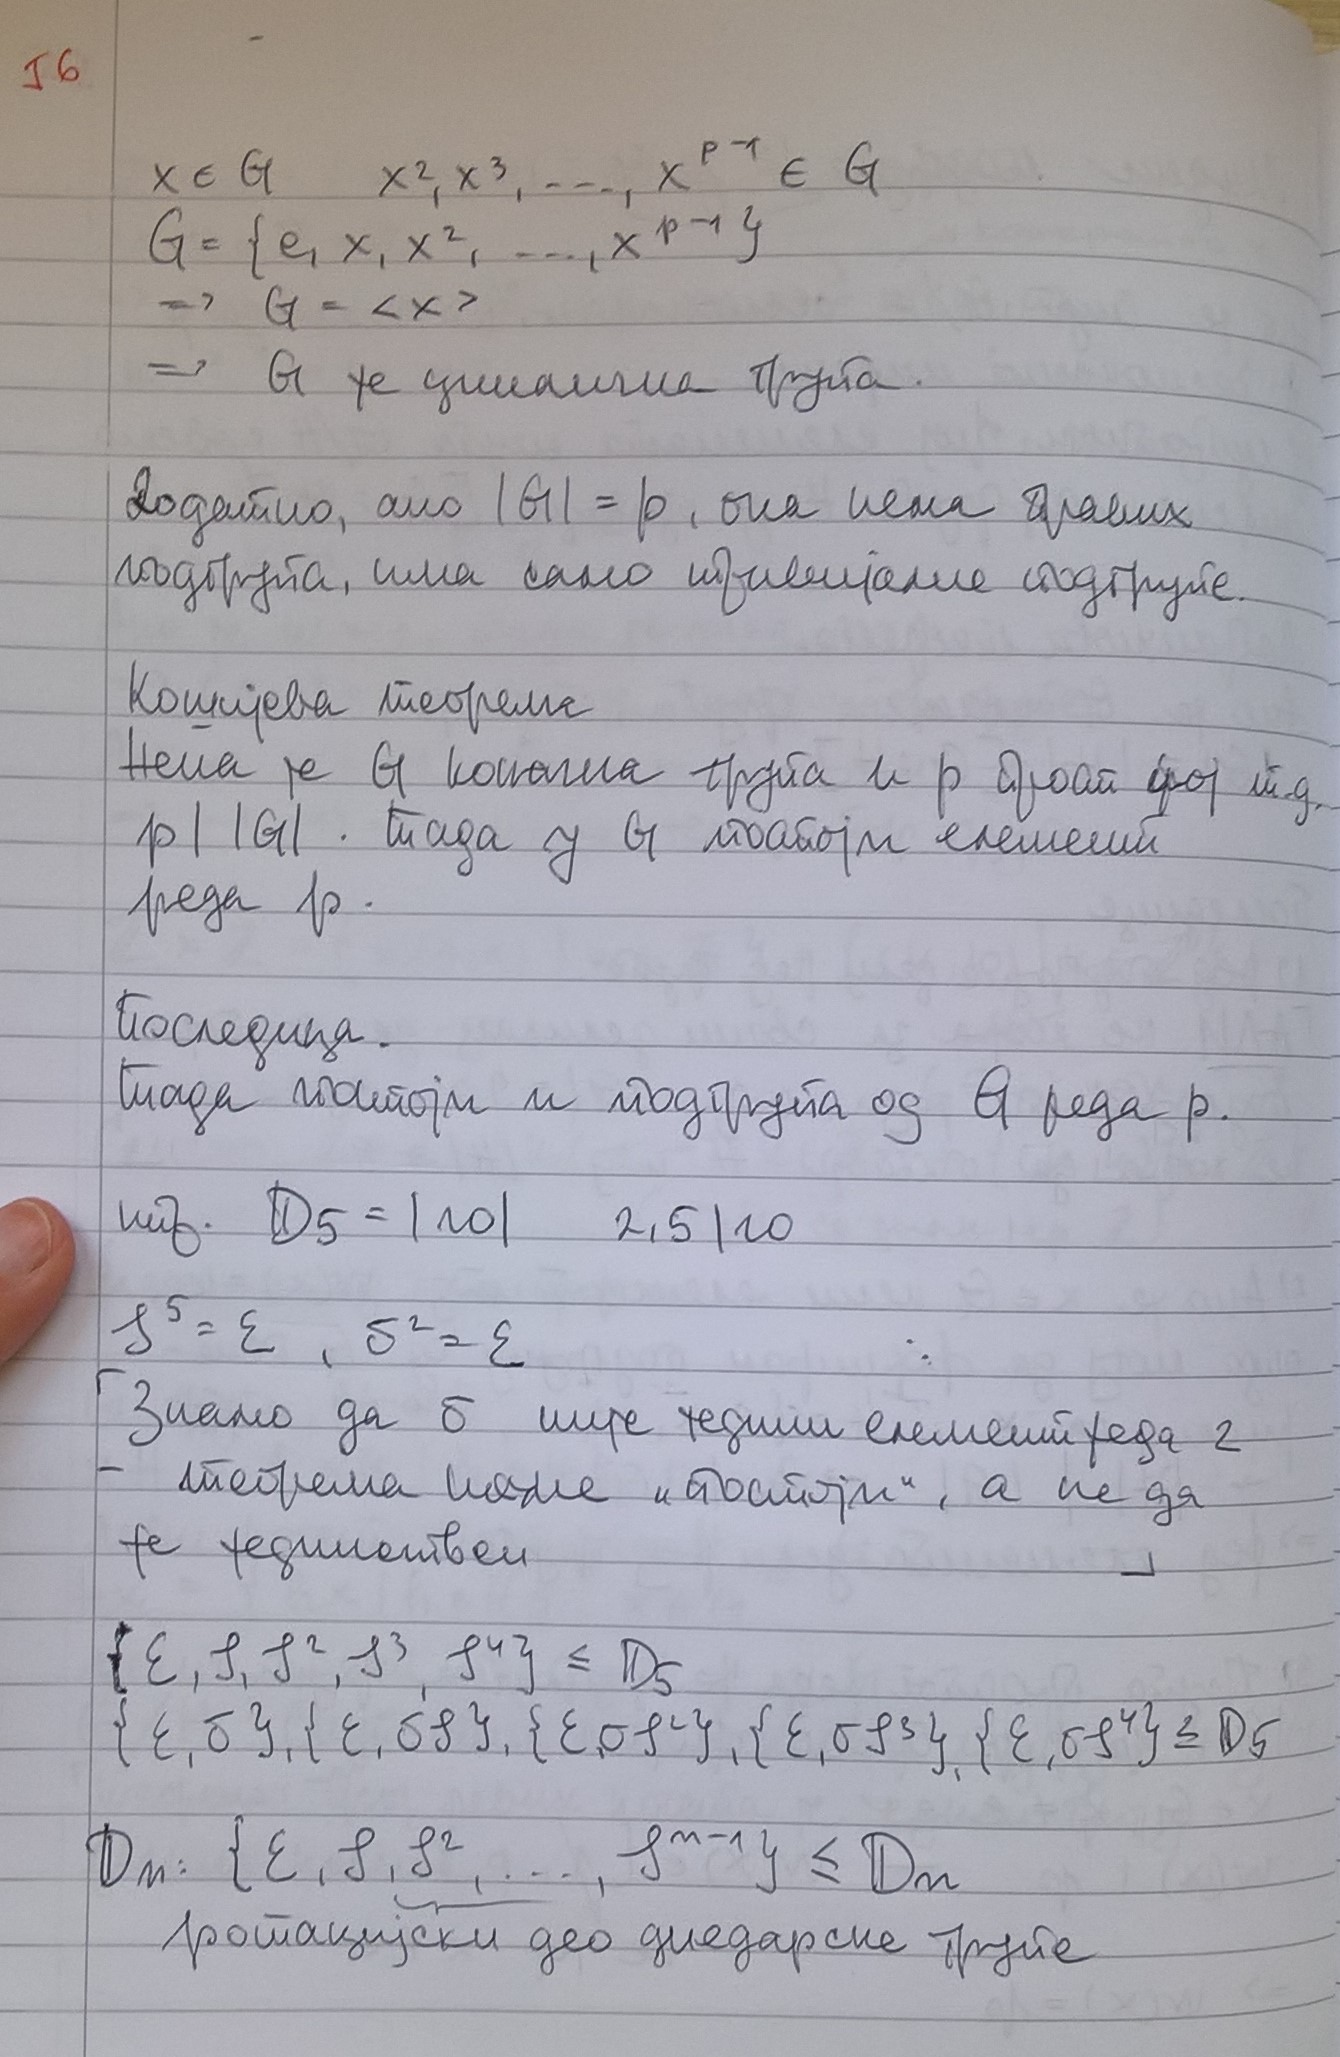 I6
x ∈ G x², x³, ..., x^{p-1} ∈ G
G = {e, x, x², ..., x^{p-1}}
=> G = <x>
=> G је циклична група.
Додатно, ако |G| = p, она нема правих
подгрупа, има само тривијалне подгрупе.
Кошијева теорема
Нека је G коначна група и p прост број т.д.
p | |G|. Тада у G постоји елемент
реда p.
Последица.
Тада постоји и подгрупа од G реда p.
нпр. D₅ = |10| 2,5|10
ρ⁵ = ε, σ² = ε
⌈Знамо да σ није једини елемент реда 2
- теорема каже „постоји“, а не да
је јединствен ⌋
{ε, ρ, ρ², ρ³, ρ⁴} ≤ D₅
{ε, σ}, {ε, σρ}, {ε, σρ²}, {ε, σρ³}, {ε, σρ⁴} ≤ D₅
Dₙ: {ε, ρ, ρ², ..., ρ^{n-1}} ≤ Dₙ
ротацијски део диедарске групе